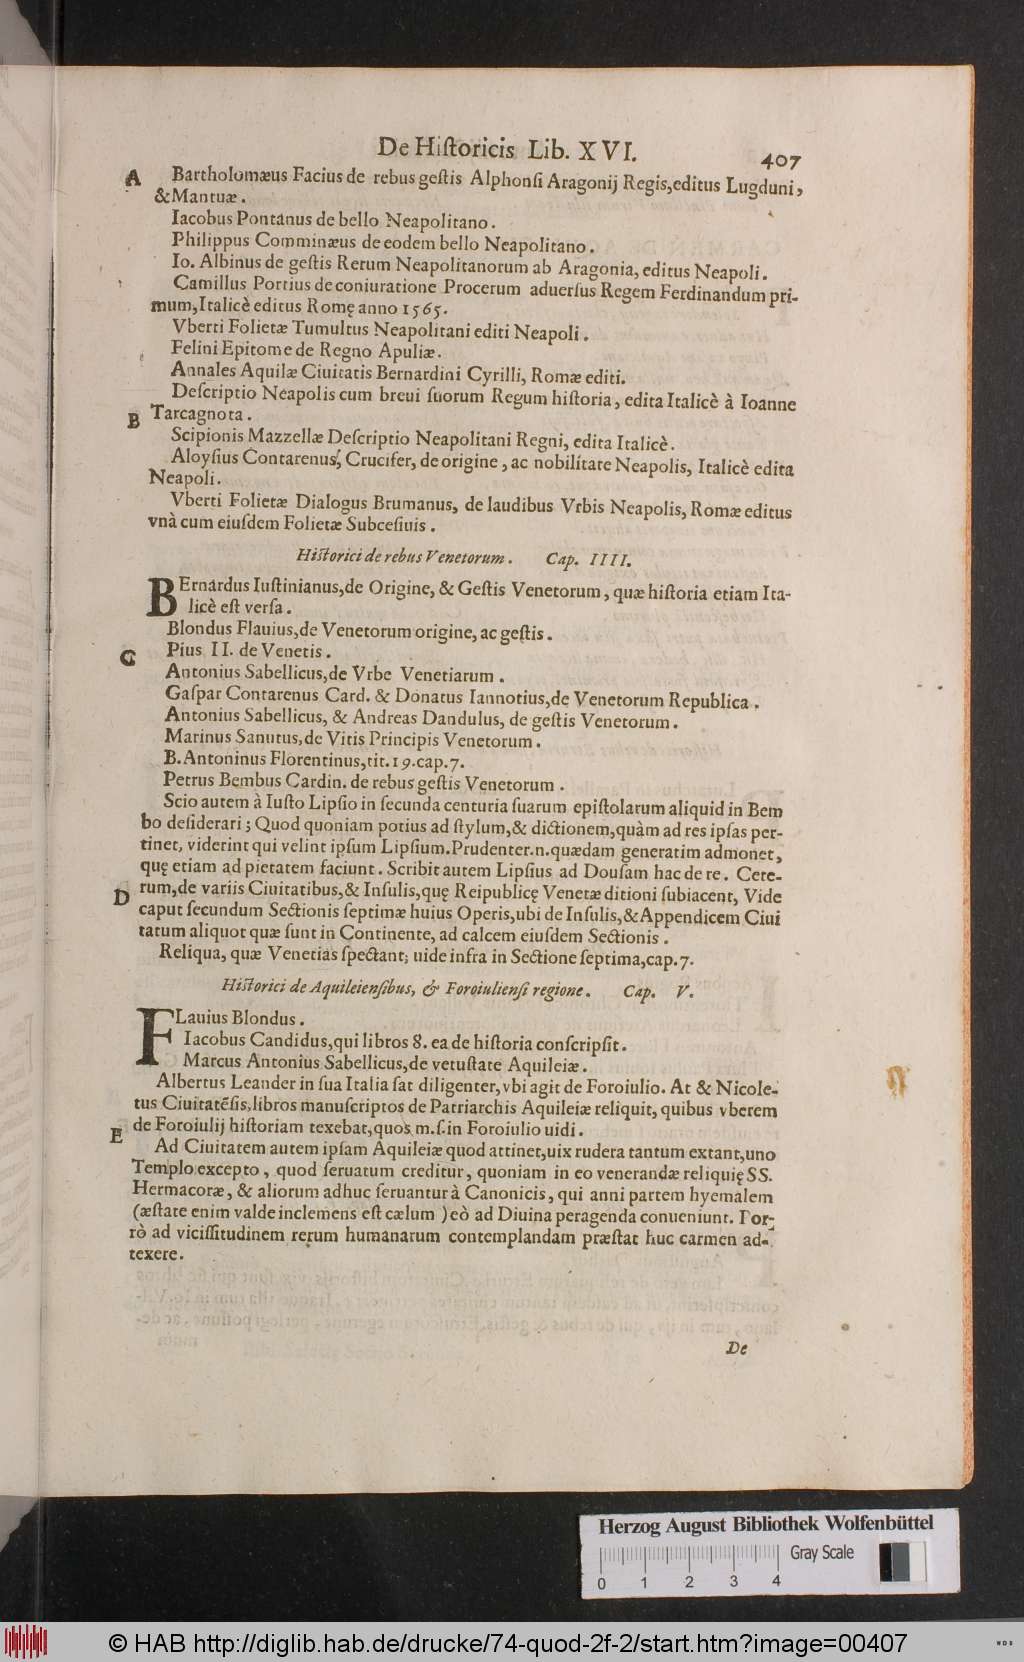 De Hiſtoricis Lib. XVI. 407
A Bartholomæus Facius de rebus geſtis Alphonſi Aragonij Regis,editus Lugduni,
&Mantuæ.
Iacobus Pontanus de bello Neapolitano.
Philippus Comminæus de eodem bello Neapolitano.
Io. Albinus de geſtis Rerum Neapolitanorum ab Aragonia, editus Neapoli.
Camillus Portius de coniuratione Procerum aduerſus Regem Ferdinandum pri-
mum,Italicè editus Romę anno 1565.
Vberti Folietæ Tumultus Neapolitani editi Neapoli.
Felini Epitome de Regno Apuliæ.
Annales Aquilæ Ciuitatis Bernardini Cyrilli, Romæ editi.
Deſcriptio Neapolis cum breui ſuorum Regum hiſtoria, edita Italicè à Ioanne
B Tarcagnota.
Scipionis Mazzellæ Deſcriptio Neapolitani Regni, edita Italicè.
Aloyſius Contarenus, Crucifer, de origine, ac nobilitate Neapolis, Italicè edita
Neapoli.
Vberti Folietæ Dialogus Brumanus, de laudibus Vrbis Neapolis, Romæ editus
vnà cum eiuſdem Folietæ Subceſiuis.
Hiſtorici de rebus Venetorum. Cap. IIII.
BErnardus Iuſtinianus,de Origine, & Geſtis Venetorum, quæ hiſtoria etiam Ita-
licè eſt verſa.
Blondus Flauius,de Venetorum origine, ac geſtis.
C Pius II. de Venetis.
Antonius Sabellicus,de Vrbe Venetiarum.
Gaſpar Contarenus Card. & Donatus Iannotius,de Venetorum Republica.
Antonius Sabellicus, & Andreas Dandulus, de geſtis Venetorum.
Marinus Sanutus,de Vitis Principis Venetorum.
B. Antoninus Florentinus,tit.19.cap.7.
Petrus Bembus Cardin. de rebus geſtis Venetorum.
Scio autem à Iuſto Lipſio in ſecunda centuria ſuarum epiſtolarum aliquid in Bem
bo deſiderari; Quod quoniam potius ad ſtylum,& dictionem,quàm ad res ipſas per-
tinet, viderint qui velint ipſum Lipſium.Prudenter.n.quædam generatim admonet,
quę etiam ad pietatem faciunt. Scribit autem Lipſius ad Douſam hac de re. Cete-
D rum,de variis Ciuitatibus,& Inſulis,quę Reipublicę Venetæ ditioni ſubiacent, Vide
caput ſecundum Sectionis ſeptimæ huius Operis,ubi de Inſulis,&Appendicem Ciui
tatum aliquot quæ ſunt in Continente, ad calcem eiuſdem Sectionis.
Reliqua, quæ Venetias ſpectant; uide infra in Sectione ſeptima,cap.7.
Hiſtorici de Aquileienſibus, & Foroiulienſi regione. Cap. V.
FLauius Blondus.
Iacobus Candidus,qui libros 8. ea de hiſtoria conſcripſit.
Marcus Antonius Sabellicus,de vetuſtate Aquileiæ.
Albertus Leander in ſua Italia ſat diligenter,vbi agit de Foroiulio. At & Nicole-
tus Ciuitatẽſis,libros manuſcriptos de Patriarchis Aquileiæ reliquit, quibus vberem
E de Foroiulij hiſtoriam texebat,quos m.ſ.in Foroiulio uidi.
Ad Ciuitatem autem ipſam Aquileiæ quod attinet,uix rudera tantum extant,uno
Templo excepto, quod ſeruatum creditur, quoniam in eo venerandæ reliquię SS.
Hermacoræ, & aliorum adhuc ſeruantur à Canonicis, qui anni partem hyemalem
(æſtate enim valde inclemens eſt cælum) eò ad Diuina peragenda conueniunt. Por-
rò ad viciſſitudinem rerum humanarum contemplandam præſtat huc carmen ad-
texere.
De
Herzog August Bibliothek Wolfenbüttel
Gray Scale
0 1 2 3 4
© HAB http://diglib.hab.de/drucke/74-quod-2f-2/start.htm?image=00407